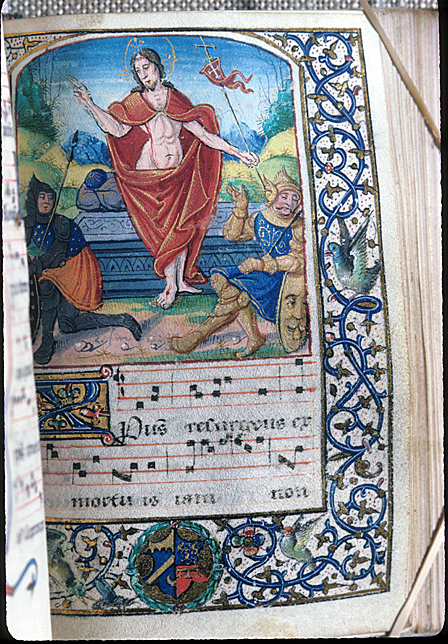 Pus resurgens ex
mortu is iam non